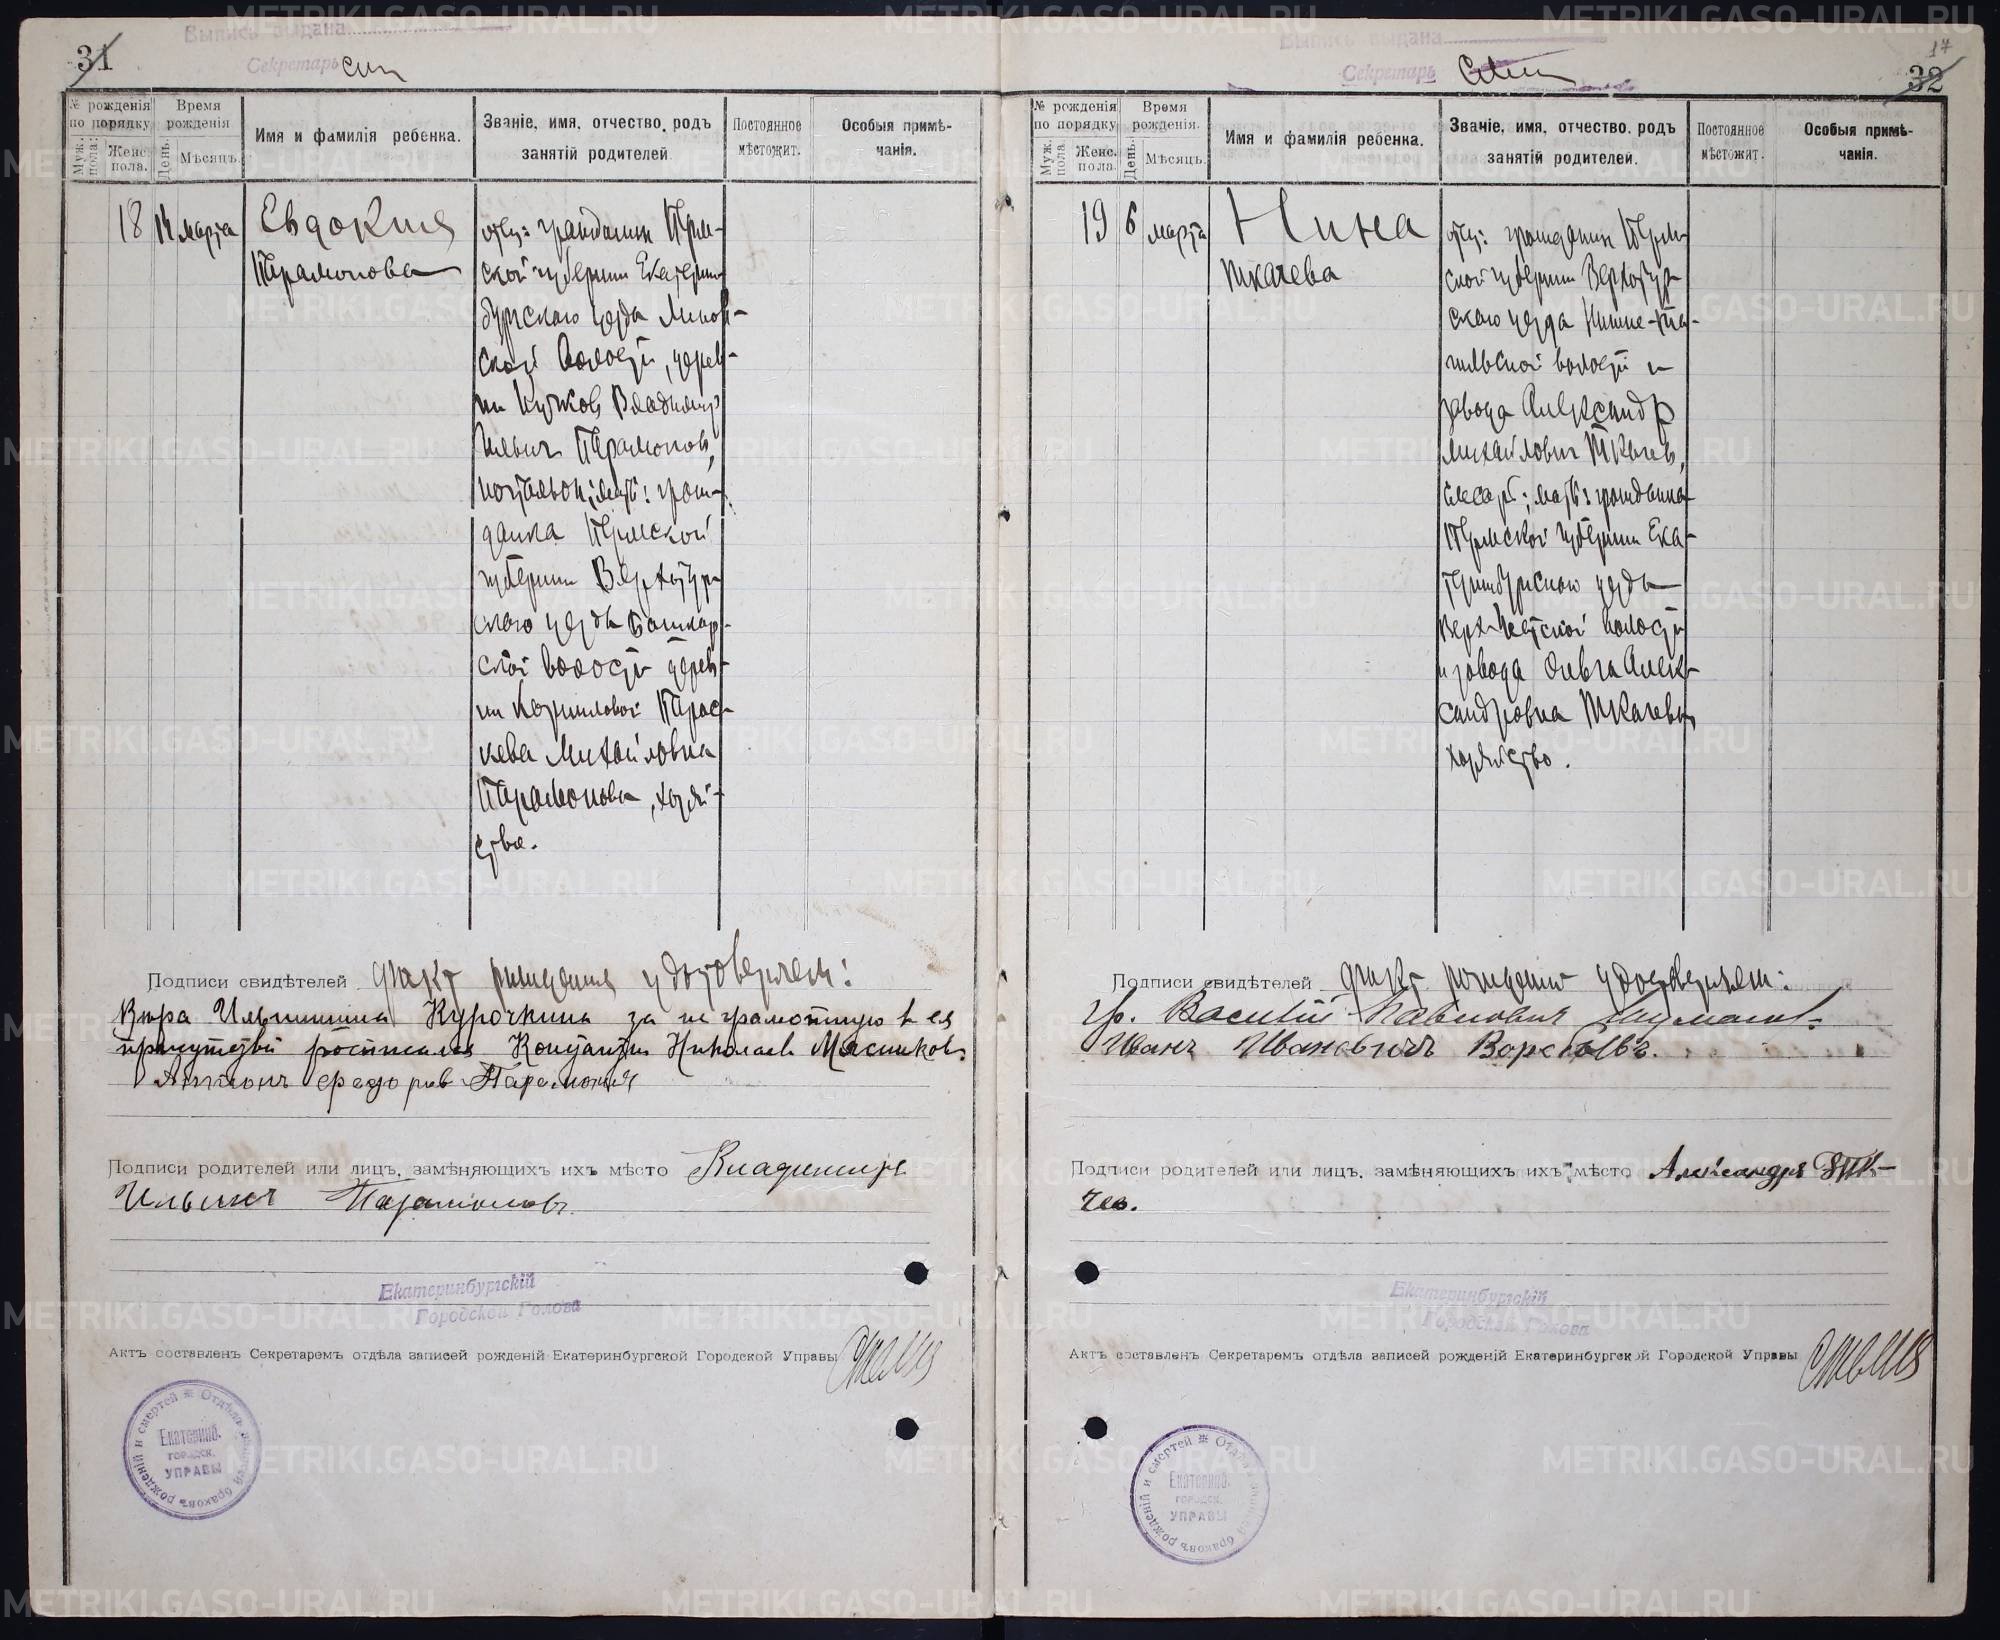 31
Выпись выдана
Секретарь
№ рожденія по порядку
Муж. пола.
Женс. пола.
Время рожденія
День.
Мѣсяцъ.
Имя и фамилія ребенка.
Званіе, имя, отчество, родъ занятій родителей
Постоянное мѣстожит.
Особыя примѣчанія.
18 14 марта
Евдокия
Парамонова
отец: гражданин Перм-
ской губернии Екатерин-
бургскаго уезда
ской волости, дерев-
ни Владимир
Ильич Парамонов,
почтальон; мать: граж-
данка Пермской
губернии Верхотур-
скаго уезда Башкар-
ской волости дерев-
ни Корниловой Парас-
кева Михайловна
Парамонова, хозяй-
ство.
Подписи свидѣтелей факт рождения удостоверяем:
Вера Ильинична Курочкина за неграмотную в ея
присутствии росписался Константин Николаев Мясников
Антонъ Федоров
Подписи родителей или лицъ, замѣняющихъ ихъ мѣсто Владимиръ
Ильичъ Парамоновъ
Екатеринбургскій
Городской Голова
Актъ составленъ Секретаремъ отдѣла записей рожденій Екатеринбургской Городской Управы
Отдѣлъ записей браковъ рожденій и смертей
Екатеринб.
ГОРОДСК.
УПРАВЫ
17
32
Выпись выдана
Секретарь
№ рожденія по порядку
Муж. пола.
Женс. пола.
Время рожденія.
День.
Мѣсяцъ.
Имя и фамилія ребенка.
Званіе, имя, отчество, родъ занятій родителей.
Постоянное мѣстожит.
Особыя примѣчанія.
19 6 марта
Нина
Ткачева
отец: гражданин Перм-
ской губернии Верхотур-
скаго уезда Нижне-Та-
гильской волости и
завода Александр
Михайлович Ткачев,
слесарь; мать: гражданка
Пермской губернии Ека-
теринбургскаго уезда
Верх-Исетской волости
и завода Ольга Алек-
сандровна Ткачева,
хозяйство.
Подписи свидѣтелей факт рождения удостоверяем:
гр. Василій Павлович
Иванъ Ивановичъ
Подписи родителей или лицъ, замѣняющихъ ихъ мѣсто Александръ Тка-
чев.
Екатеринбургскій
Городской Голова
Актъ составленъ Секретаремъ отдѣла записей рожденій Екатеринбургской Городской Управы
Отдѣлъ записей браковъ рожденій и смертей
Екатеринб.
ГОРОДСК.
УПРАВЫ
METRIKI.GASO-URAL.RU